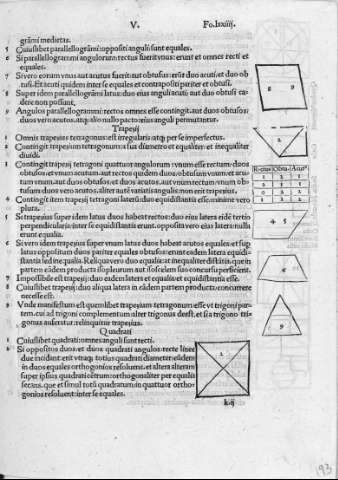 V. Fo.lxiiij.
grāmi medietas.
5 Cuiuslibet parallellogrāmi oppositi anguli sunt equales.
6 Si parallelogrammi angulorum rectus fuerit vnus: erunt et omnes recti et
equales.
7 Si vero eorum vnus aut acutus fuerit aut obtusus: erūt duo acuti et duo ob
tusi. Et acuti quidem inter se equales et contrapositi pariter et obtusi.
8 Super idem parallelogrāmi latus: duo eius anguli acuti aut duo obtusi ca
dere non possunt.
9 Angulos parallelogrammi rectos omnes esse contingit. aut duos obtusos:
duos vero acutos. atqȝ alio nullo pacto eius anguli permutantur.
Trapezij
1 Omnis trapezius tetragonus: est irregularis atqȝ per se imperfectus.
2 Contingit trapezium tetragonum: a sui diametro et equaliter et inequaliter
diuidi.
3 Contingit trapezij tetragoni quattuor angulorum: vnum esse rectum: duos
obtusos: et vnum acutum. aut rectos quidem duos: obtusum vnum: et acu-
tum vnum. aut duos obtusos et duos acutos. aut vnum rectum: vnum ob-
tusum: duos vero acutos. aliter autē variis angulis: non erit trapezius.
4 Contingit item trapezij tetragoni latera: duo equidistantia esse: minime vero
plura.
5 Si trapezius super idem latus duos habeat rectos: duo eius latera eidē tertio
perpendicularia: inter se equidistantia erunt. opposita vero eius latera: nulla
erunt equalia.
6 Si vero idem trapezius super vnum latus duos habeat acutos equales: et sup
latus oppositum duos pariter equales obtusos: habebit eadem latera equidi-
stantia sed inequalia. Reliqua vero duo equalia: et inequaliter distātia. que in
partem eādem producta
7 Impossibile est trapezij: duo eadem latera et equalia et equidistantia esse.
8 Cuiuslibet trapezij: duo aliqua latera in eādem partem producta: concurrere
necesse est.
9 Unde manifestum est quemlibet trapezium tetragonum esse vt trigoni par-
tem. cui ad trigoni complementum alter trigonus deest. et si a trigono tri-
gonus auferatur: relinquitur trapezius.
Quadrati
1 Cuiuslibet quadrati: omnes anguli sunt recti.
2 Si oppositos duos et duos quadrati angulos: recte linee
due incidunt: erit vtraqȝ totius quadrati diameter: eūdem
in duos equales orthogonios resoluens. et altera alteram
super ipsius quadrati cētrum: orthogonaliter per equalia
secans. que et simul totū quadratum: in quattuor ortho-
gonios resoluent: inter se equales.
k.ij
8 9
2
Rectus Obtu. Acut⁹
1 2 1
2 1 1
0 2 2
1 1 2
4 5
6
9
2
193